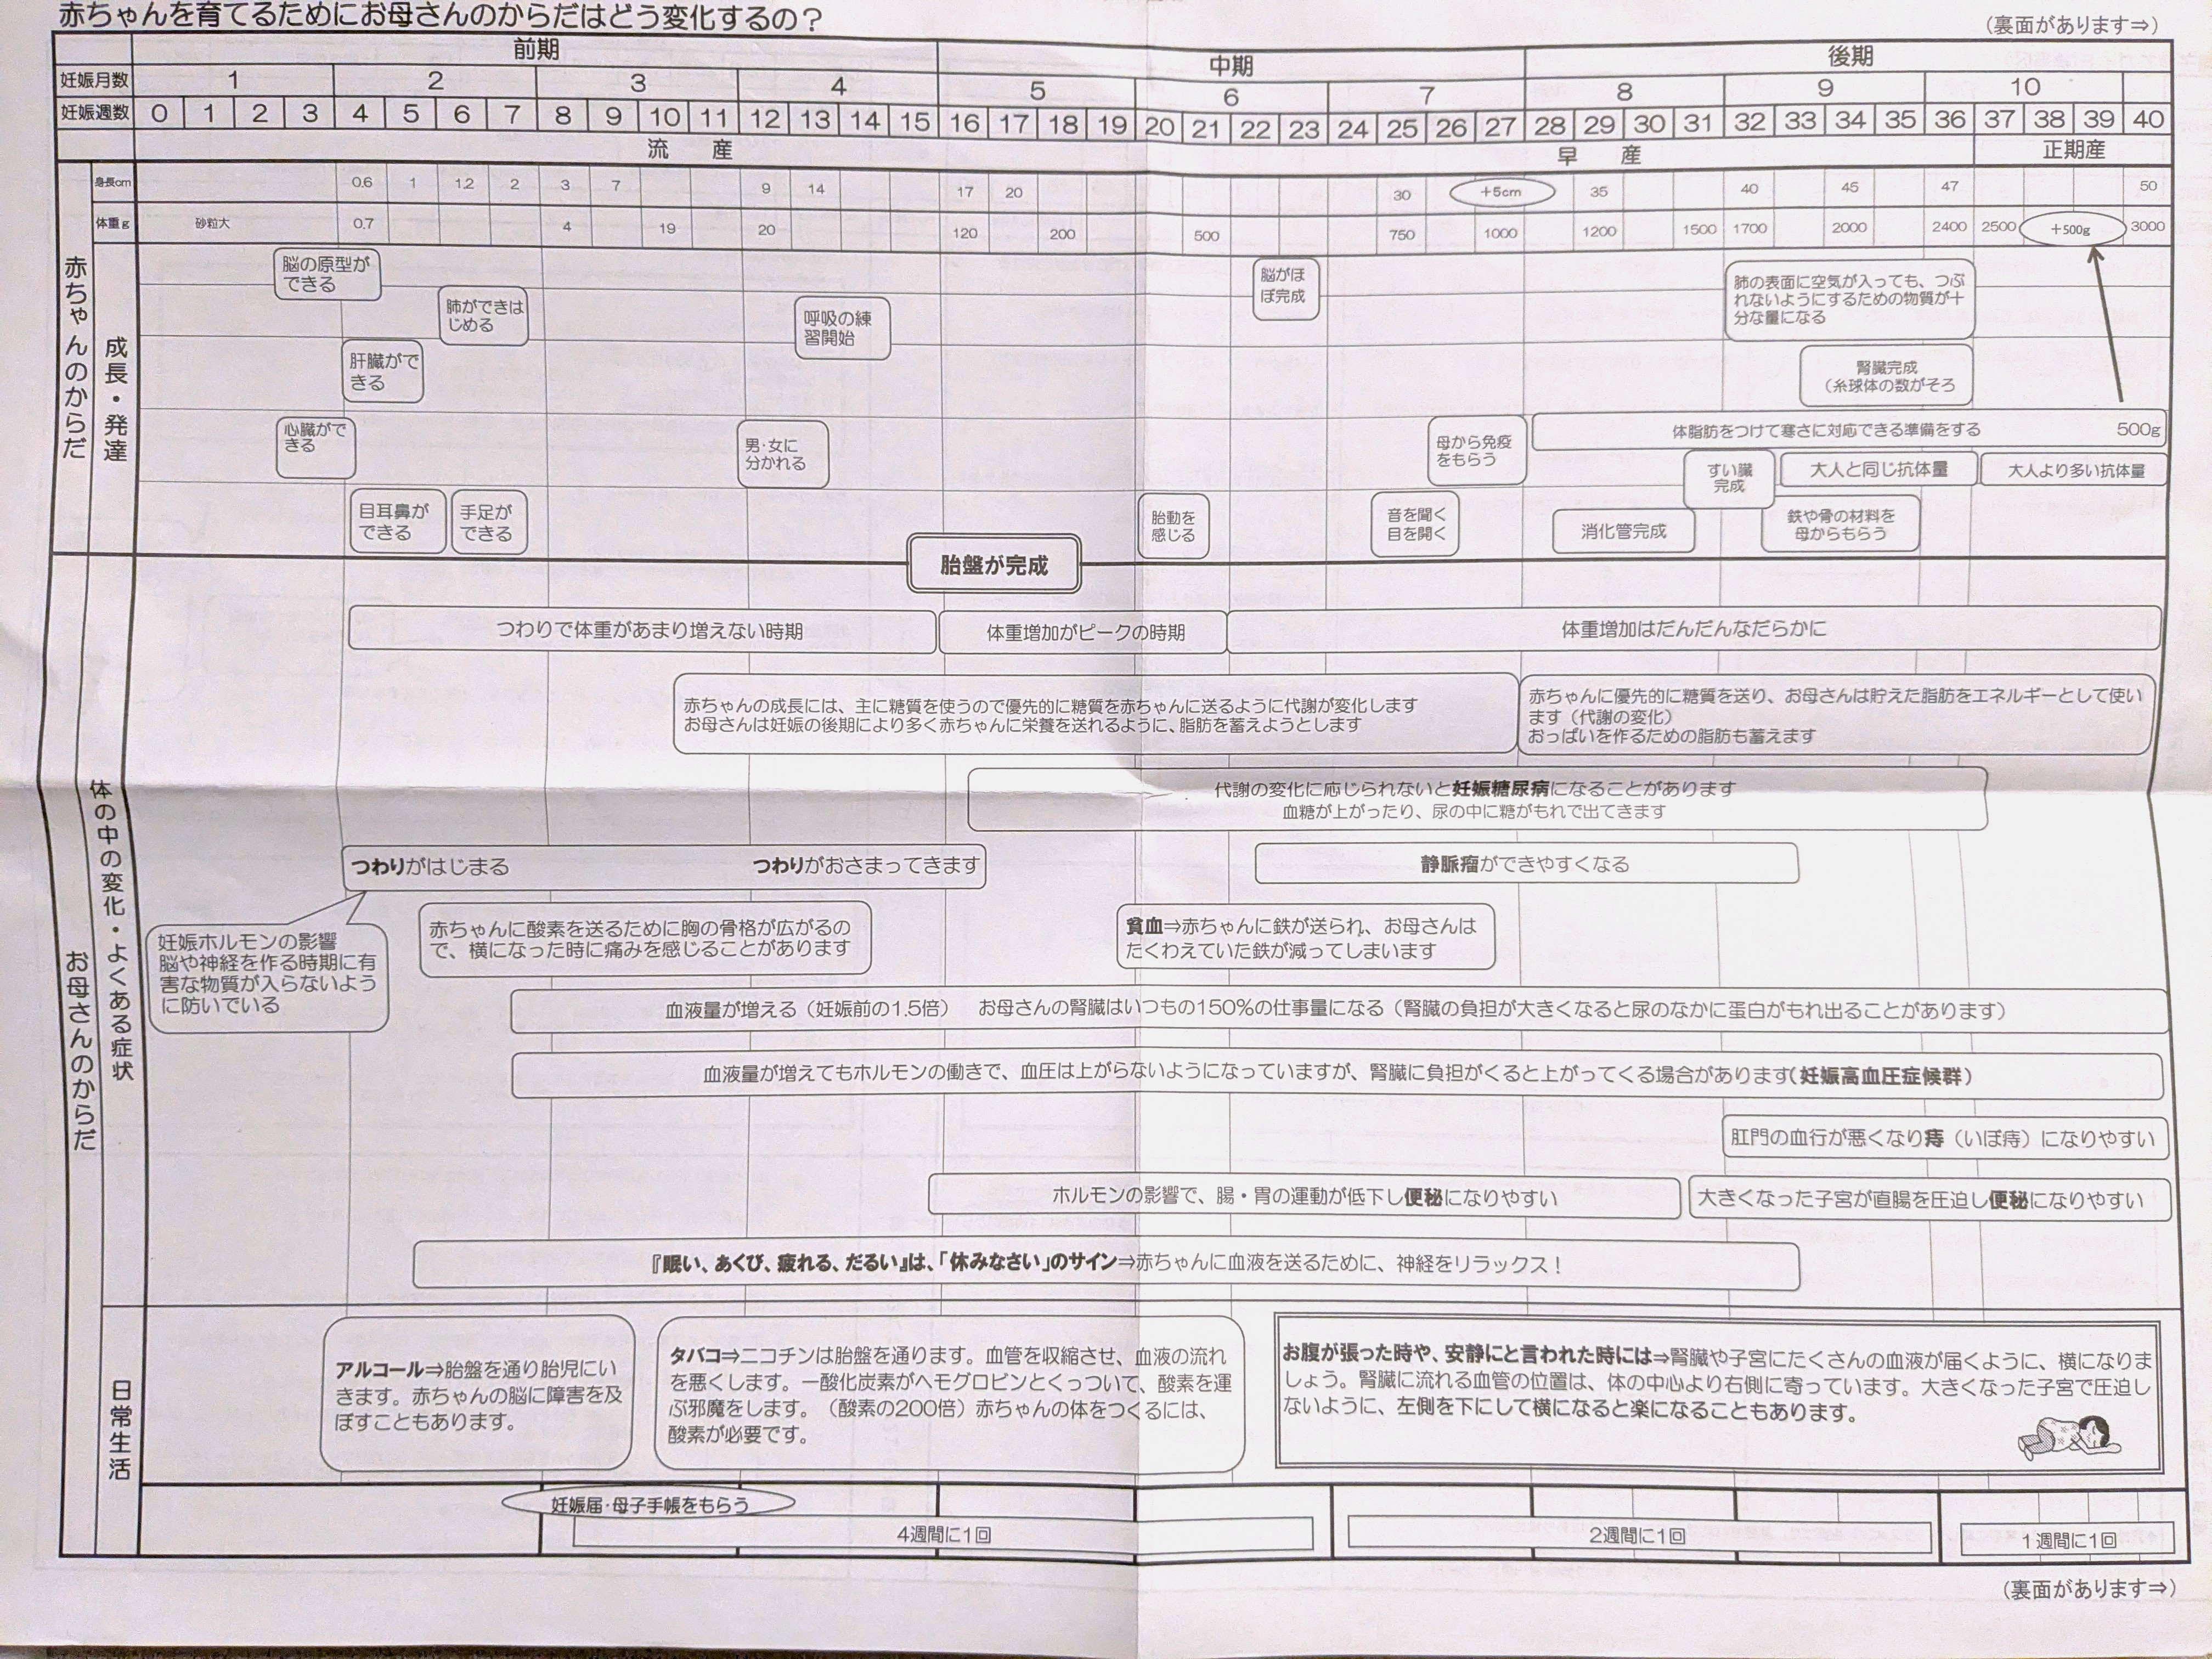 赤ちゃんを育てるためにお母さんのからだはどう変化するの？
(裏面があります⇒)
前期 中期 後期
妊娠月数 1 2 3 4 5 6 7 8 9 10
妊娠週数 0 1 2 3 4 5 6 7 8 9 10 11 12 13 14 15 16 17 18 19 20 21 22 23 24 25 26 27 28 29 30 31 32 33 34 35 36 37 38 39 40
流産 早産 正期産
赤ちゃんのからだ
身長cm 0.6 1 1.2 2 3 7 9 14 17 20 30 +5cm 35 40 45 47 50
体重g 砂粒大 0.7 4 19 20 120 200 500 750 1000 1200 1500 1700 2000 2400 2500 +500g 3000
成長・発達
脳の原型が
できる
肺ができは
じめる
呼吸の練
習開始
脳がほ
ぼ完成
肺の表面に空気が入っても、つぶ
れないようにするための物質が十
分な量になる
肝臓がで
きる
腎臓完成
（糸球体の数がそろ
心臓がで
きる
男・女に
分かれる
母から免疫
をもらう
体脂肪をつけて寒さに対応できる準備をする 500g
すい臓
完成
大人と同じ抗体量
大人より多い抗体量
目耳鼻が
できる
手足が
できる
胎動を
感じる
音を聞く
目を開く
消化管完成
鉄や骨の材料を
母からもらう
胎盤が完成
お母さんのからだ
体の中の変化・よくある症状
つわりで体重があまり増えない時期
体重増加がピークの時期
体重増加はだんだんなだらかに
赤ちゃんの成長には、主に糖質を使うので優先的に糖質を赤ちゃんに送るように代謝が変化します
お母さんは妊娠の後期により多く赤ちゃんに栄養を送れるように、脂肪を蓄えようとします
赤ちゃんに優先的に糖質を送り、お母さんは貯えた脂肪をエネルギーとして使い
ます（代謝の変化）
おっぱいを作るための脂肪も蓄えます
代謝の変化に応じられないと妊娠糖尿病になることがあります
血糖が上がったり、尿の中に糖がもれで出てきます
つわりがはじまる つわりがおさまってきます
静脈瘤ができやすくなる
妊娠ホルモンの影響
脳や神経を作る時期に有
害な物質が入らないよう
に防いでいる
赤ちゃんに酸素を送るために胸の骨格が広がるの
で、横になった時に痛みを感じることがあります
貧血⇒赤ちゃんに鉄が送られ、お母さんは
たくわえていた鉄が減ってしまいます
血液量が増える（妊娠前の1.5倍） お母さんの腎臓はいつもの150％の仕事量になる（腎臓の負担が大きくなると尿のなかに蛋白がもれ出ることがあります）
血液量が増えてもホルモンの働きで、血圧は上がらないようになっていますが、腎臓に負担がくると上がってくる場合があります（妊娠高血圧症候群）
肛門の血行が悪くなり痔（いぼ痔）になりやすい
ホルモンの影響で、腸・胃の運動が低下し便秘になりやすい
大きくなった子宮が直腸を圧迫し便秘になりやすい
『眠い、あくび、疲れる、だるい』は、「休みなさい」のサイン⇒赤ちゃんに血液を送るために、神経をリラックス！
日常生活
アルコール⇒胎盤を通り胎児にい
きます。赤ちゃんの脳に障害を及
ぼすこともあります。
タバコ⇒ニコチンは胎盤を通ります。血管を収縮させ、血液の流れ
を悪くします。一酸化炭素がヘモグロビンとくっついて、酸素を運
ぶ邪魔をします。（酸素の200倍）赤ちゃんの体をつくるには、
酸素が必要です。
お腹が張った時や、安静にと言われた時には⇒腎臓や子宮にたくさんの血液が届くように、横になりま
しょう。腎臓に流れる血管の位置は、体の中心より右側に寄っています。大きくなった子宮で圧迫し
ないように、左側を下にして横になると楽になることもあります。
妊娠届・母子手帳をもらう
4週間に1回
2週間に1回
1週間に1回
(裏面があります⇒)